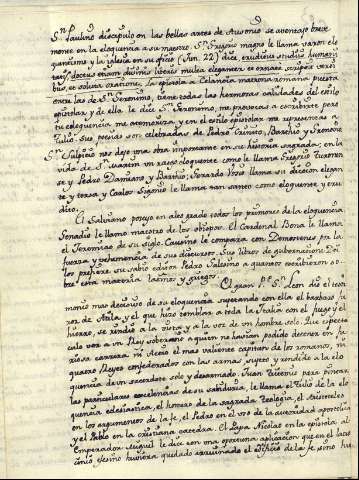 Sn. Paulino discipulo en las bellas artes de Ausonio se aventajo breve
mente en la eloquencia a su maestro. Sn. Gregorio magno le llama varon elo
quentisimo y la iglesia en su oficio (Jun. 22) dice eruditus studiis humani
tatis, doctus etiam divinis literis multa eleganter et ornate scripsit versi
bus, et soluta oratione. La epistola a Celancia matrona romana puesta
entre las de Sn. Geronimo, tiene todas las hermosas calidades del estilo
epistolar, y de ella le dice Sn. Geronimo, me provocas a escribirte pero
tu eloquencia me atemoriza, y en el estilo epistolar me representas a
Tulio. Sus poesias son celebradas de Pedro Crinito, Barchio y
Sn. Sulpicio nos dejo una obra importante en su historia sagrada; en la
vida de Sn. Martin un rasgo eloquente como le llama Gregorio Turonen
se y Pedro Damiano y Barthio; Gerardo Vosio llama su diccion elegan
te y tersa y Carlos Sigonio le llama tan santo como eloquente y eru
dito.
El Salviano poseyo en alto grado todos los primores de la eloquencia.
Genadio le llamo maestro de los obispos. El Cardenal Bona le llama
el Jeremias de su siglo. Causino le compara con Demostenes por la
fuerza y vehemencia de sus discursos. Sus libros de gubernatione Dei
los prefiere su sabio editor Pedro Galesino a quantos escribieron so
bre esta materia latinos y griegos.
El gran P. Sn. Leon dio el testi
monio mas decisivo de su eloquencia superando con ella el barbaro fu
ror de Atila, y el que hizo temblar a toda la Italia con el fuego y el
hierro, se rindio a la vista y a la voz de un hombre solo. Que especta
culo ver a un Rey soberano a quien no havian podido detener en fu
riosa carrera, ni Aecio el mas valiente capitan de los romanos, ni
quatro Reyes confederados con las armas sujeto y rendido a la elo
quencia de un sacerdote solo y desarmado. Juan para pintar
las particulares excelencias de su sabiduria, le llama el Tulio de la elo
quencia eclesiastica, el homero de la sagrada Teologia, el Aristoteles
en los argumentos de la fe, el Pedro en el oro de la autoridad apostolica
y el Pablo en la cristiana catedra. El Papa Nicolas en la epistola al
Emperador Miguel le dice con una oportuna aplicacion que en el Laco
cinio efesino huviera quedado arruinado el edificio de la fe sino hu